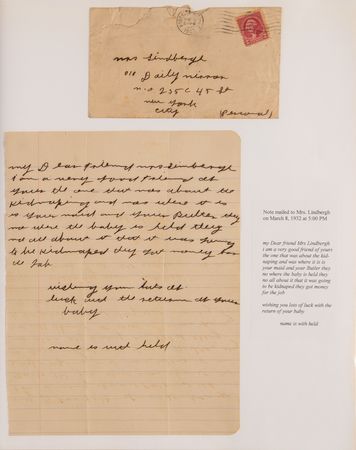 mrs Lindbergh
Daily mirror
no 235 E 45 St
new York
City
(Personal)
my Dear Friend mrs Lindbergh
I am a very good friend of
yours the one that was about the
kidnaping and was where it is
is your maid and your Butler they
no were the baby is held they
no all about it that it was going
to be kidnaped they got money for
the Job
wishing you lots of
luck and the return of your
baby
name is held
Note mailed to Mrs. Lindbergh
on March 8, 1932 at 5:00 PM
my Dear friend Mrs Lindbergh
i am a very good friend of yours
the one that was about the kid-
naping and was where it is is
your maid and your Butler they
no where the baby is held they
no all about it that it was going
to be kidnaped they got money
for the job
wishing you lots of luck with the
return of your baby
name is with held